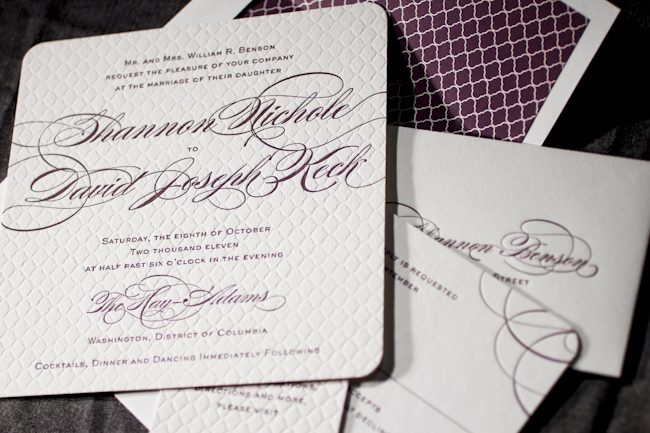 Mr. and Mrs. William R. Benson
request the pleasure of your company
at the marriage of their daughter
Shannon Nichole
to
David Joseph Keck
Saturday, the eighth of October
Two thousand eleven
at half past six o'clock in the evening
The Hay-Adams
Washington, District of Columbia
Cocktails, Dinner and Dancing Immediately Following
please visit
Shannon Benson
Street
is requested